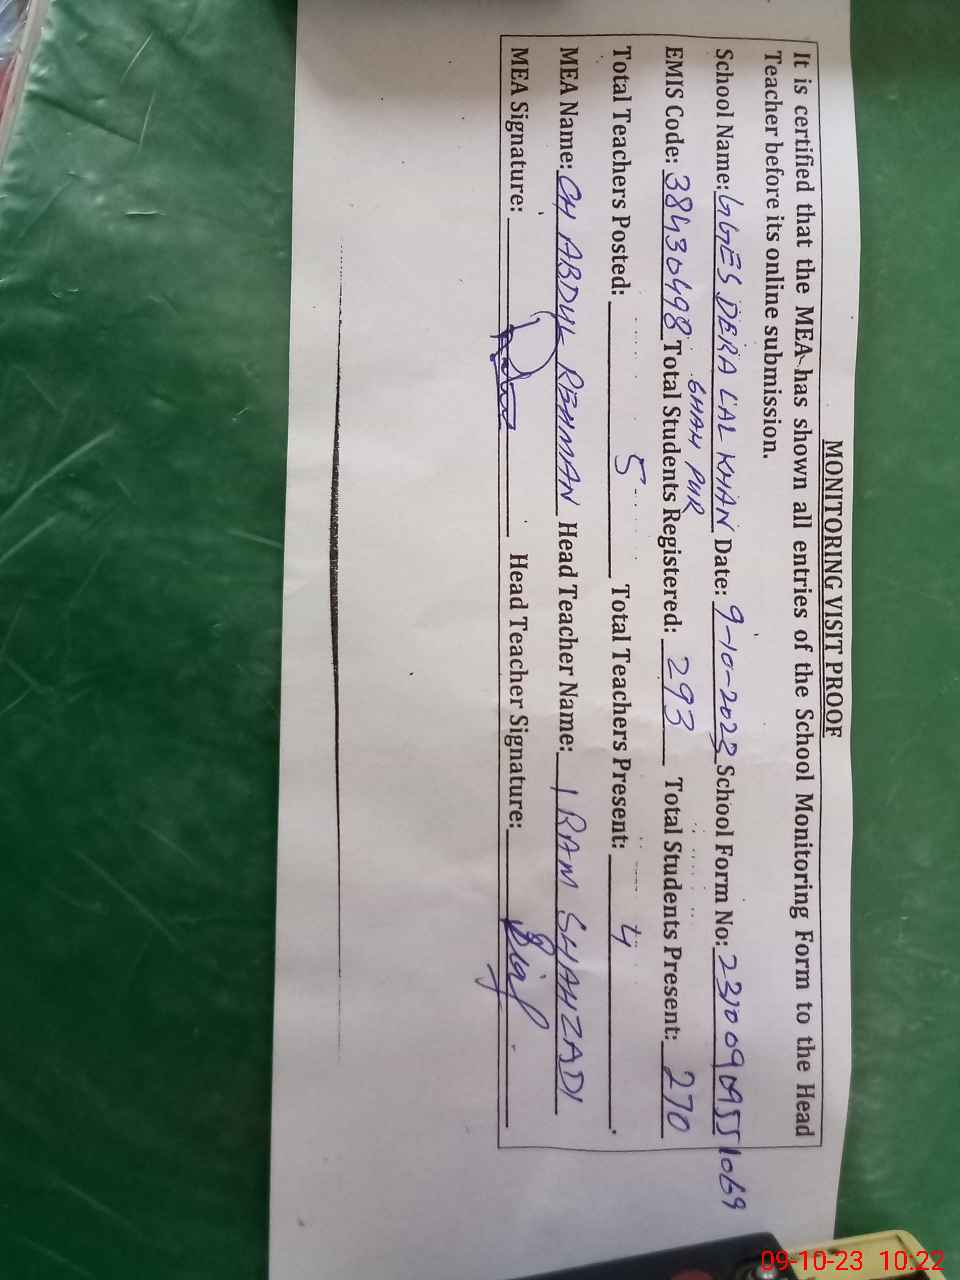 MONITORING VISIT PROOF
It is certified that the MEA has shown all entries of the School Monitoring Form to the Head
Teacher before its online submission.
School Name: GGES DERA LAL KHAN Date: 9-10-2023 School Form No: 23100909551069
GHAH PUR
EMIS Code: 38430498 Total Students Registered: 293 Total Students Present: 270
Total Teachers Posted: 5 Total Teachers Present: 4
MEA Name: CH ABDUL REHMAN Head Teacher Name: IRAM SHAHZADI
MEA Signature: Head Teacher Signature:
09-10-23 10:22